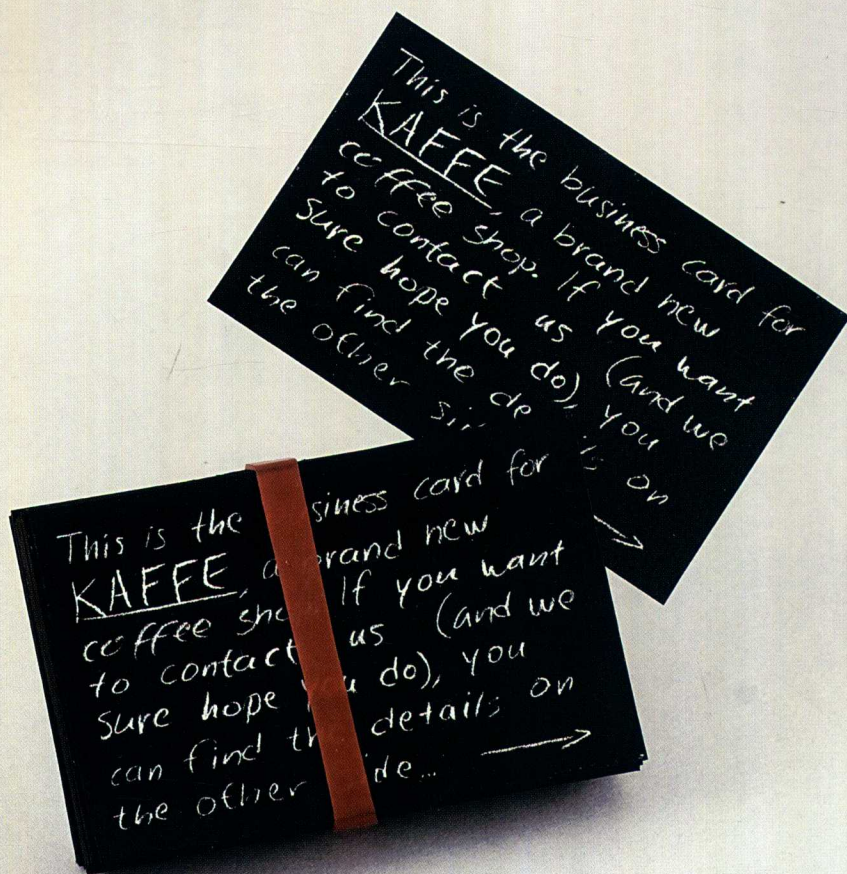 This is the business card for
KAFFE, a brand new
coffee shop. If you want
to contact us (and we
sure hope you do), you
can find the de on
the other si
This is the siness card for
KAFFE, a brand new
coffee sho If you want
to contact us (and we
sure hope you do), you
can find th details on
the other ide...